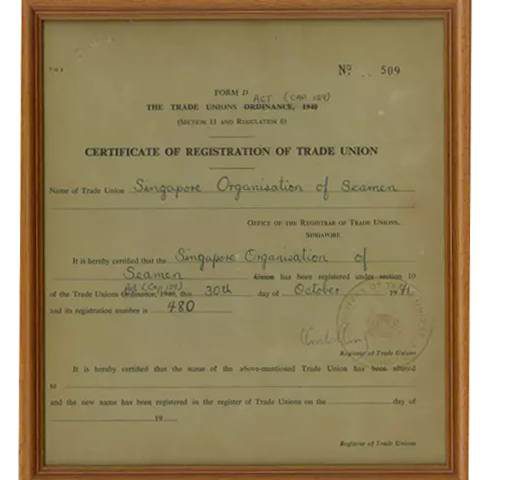 Nº 509
FORM D
ACT (CAP 129)
THE TRADE UNIONS ORDINANCE, 1940
(SECTION 13 AND REGULATION 6)
CERTIFICATE OF REGISTRATION OF TRADE UNION
Name of Trade Union Singapore Organisation of Seamen
OFFICE OF THE REGISTRAR OF TRADE UNIONS,
SINGAPORE
It is hereby certified that the Singapore Organisation of
Seamen Union has been registered under section 10
Act (Cap 129)
of the Trade Unions Ordinance, 1940, this 30th day of October 1971
and its registration number is 480
Registrar of Trade Unions
It is hereby certified that the name of the above-mentioned Trade Union has been altered
to
and the new name has been registered in the register of Trade Unions on the day of
19
Registrar of Trade Unions